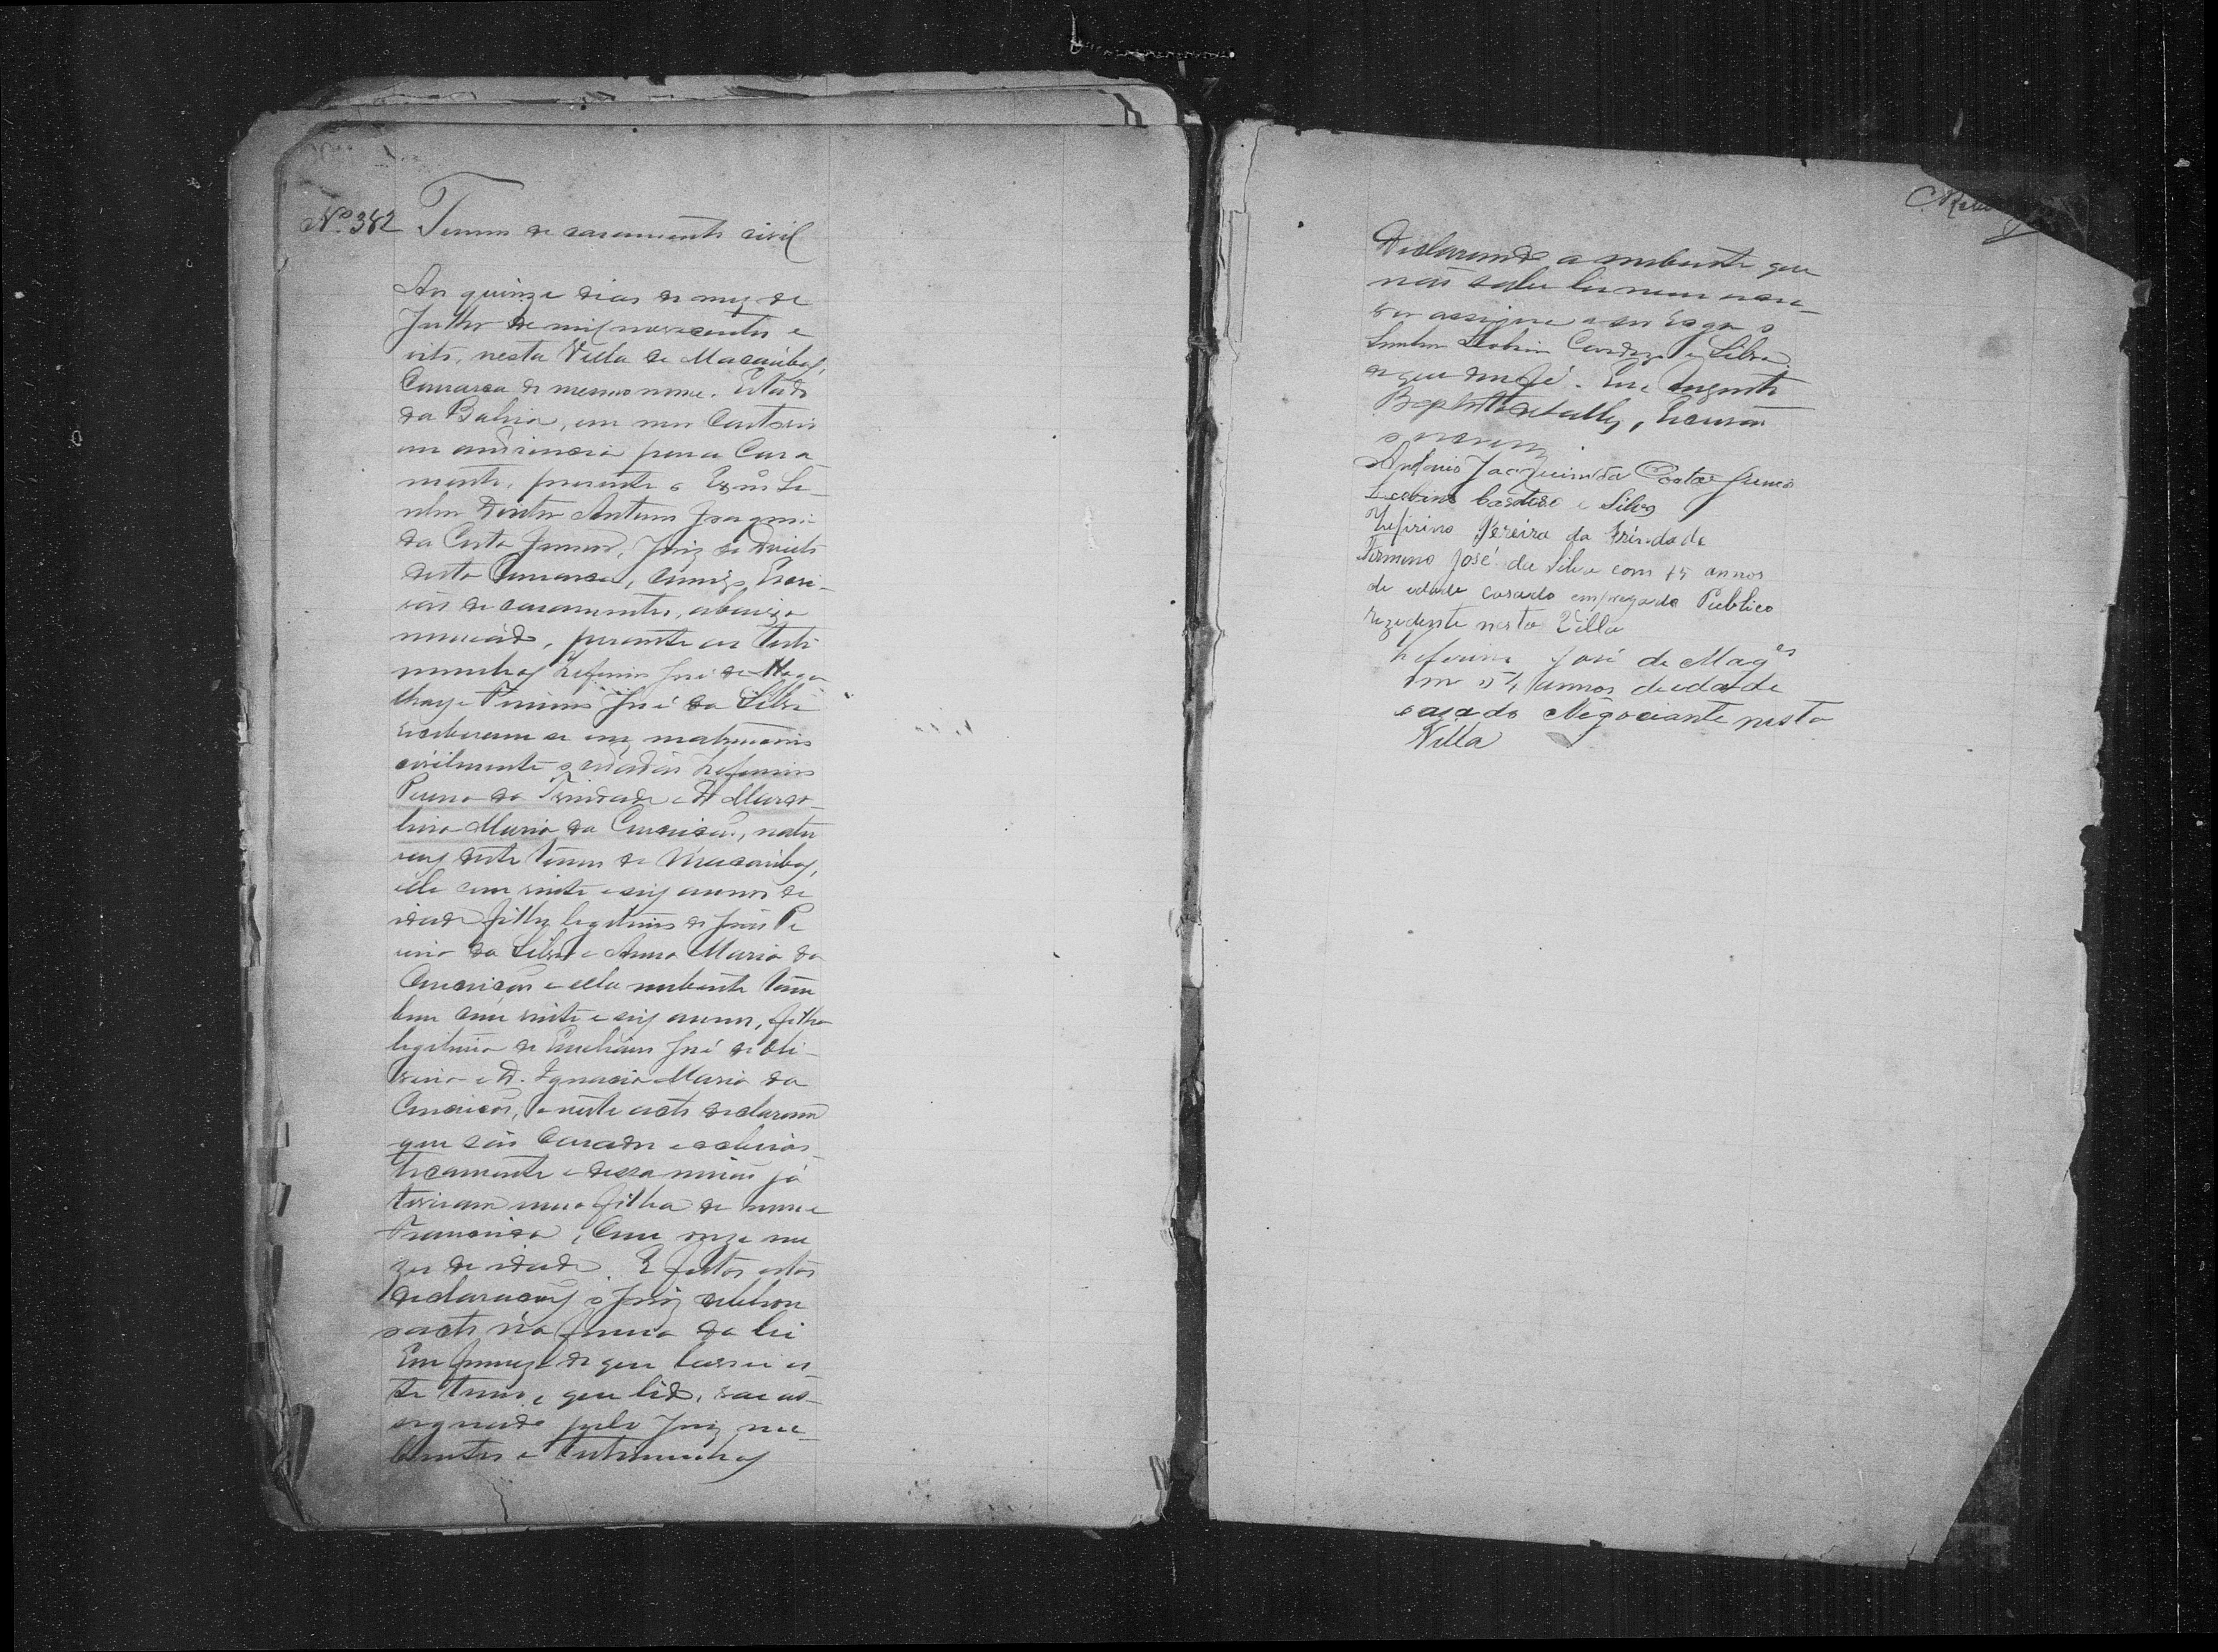 Nº 382 Termo de casamento civil
Aos quinze dias do mez de
Julho de mil novecentos e
oito, nesta Villa de Macaúbas,
Comarca do mesmo nome. Estado
da Bahia, em meu Cartorio
em audiencia para Casa-
mento, presente o Exmº Se-
nhor Doutor Antonio Joaquim
da Costa Junior, Juiz de Direito
desta Comarca, commigo Escri-
vão de casamentos, abaixo
nomeado, perante as testi
munhas Zeferino José de Maga
lhães e Firmino José da Silva
receberam se em matrimonio
civilmente o cidadão Zeferino
Pereira da Trindade e D. Marco-
lina Maria da Conceição, natu
raes deste termo de Macaúbas,
elle com vinte e seis annos de
idade filho legitimo de João Pe
reira da Silva e Anna Maria da
Conceição e ella nubente tam
bem com vinte e seis annos, filha
legitima de José de Oli-
veira e D. Ignacia Maria da
Conceição, e neste acto declararam
que são Casados ecclesias-
ticamente e dessa união já
tiveram uma filha de nome
Francisca, Com onze me
zes de idade. E feitas estas
declarações o Juiz celebrou
o acto na forma da lei
Em firmeza do que lavrei es-
te termo, que lido, vae as-
signado pelo Juiz nu-
bentes e testemunhas
Declarando a nubente que
não sabe ler nem escre-
ver assigna a seu rogo o
Senhor Cardozo e Silva
do que dou fé. Eu, Augusto
Baptista , Escrivão
o escrevi
Antonio Joaquim da Costa Junior
Cardoso e Silva
Zefirino Pereira da Trindade
Firmino José da Silva com 45 annos
de edade casado empregado Publico
rezidente nesta Villa
Zeferino José de Mag.es
com 54 annos de edade
casado Negociante nesta
Villa